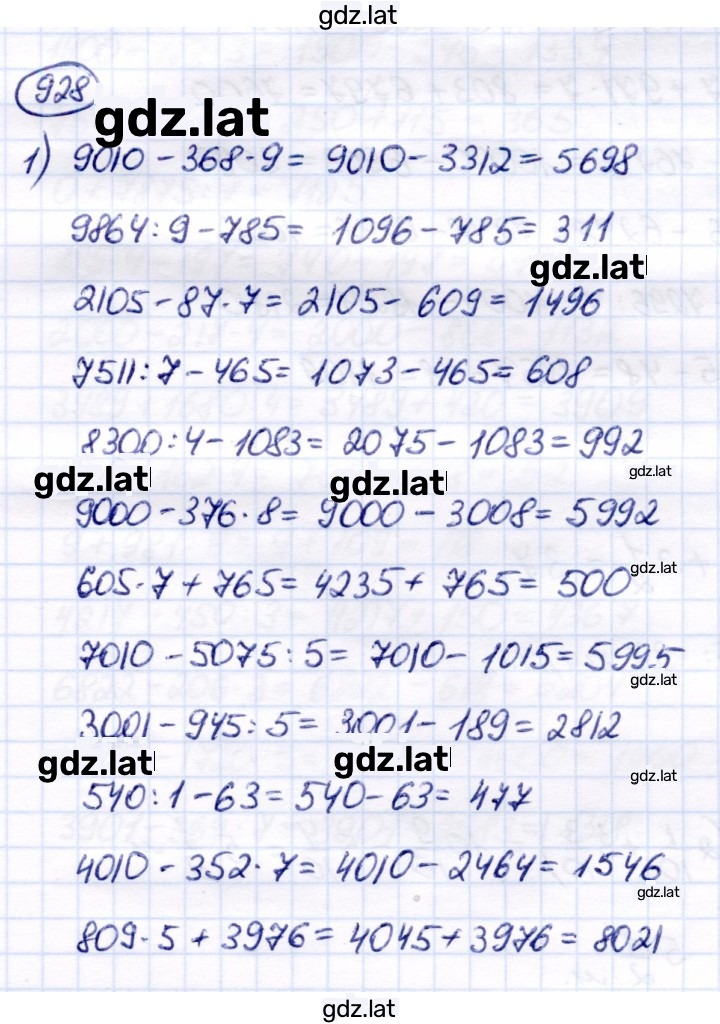 gdz.lat
928
gdz.lat
1) 9010 - 368 · 9 = 9010 - 3312 = 5698
9864 : 9 - 785 = 1096 - 785 = 311
gdz.lat
2105 - 87 · 7 = 2105 - 609 = 1496
7511 : 7 - 465 = 1073 - 465 = 608
8300 : 4 - 1083 = 2075 - 1083 = 992
gdz.lat gdz.lat gdz.lat
9000 - 376 · 8 = 9000 - 3008 = 5992
605 · 7 + 765 = 4235 + 765 = 500
gdz.lat
7010 - 5075 : 5 = 7010 - 1015 = 5995
gdz.lat
3001 - 945 : 5 = 3001 - 189 = 2812
gdz.lat gdz.lat gdz.lat
540 : 1 - 63 = 540 - 63 = 477
4010 - 352 · 7 = 4010 - 2464 = 1546
gdz.lat
809 · 5 + 3976 = 4045 + 3976 = 8021
gdz.lat